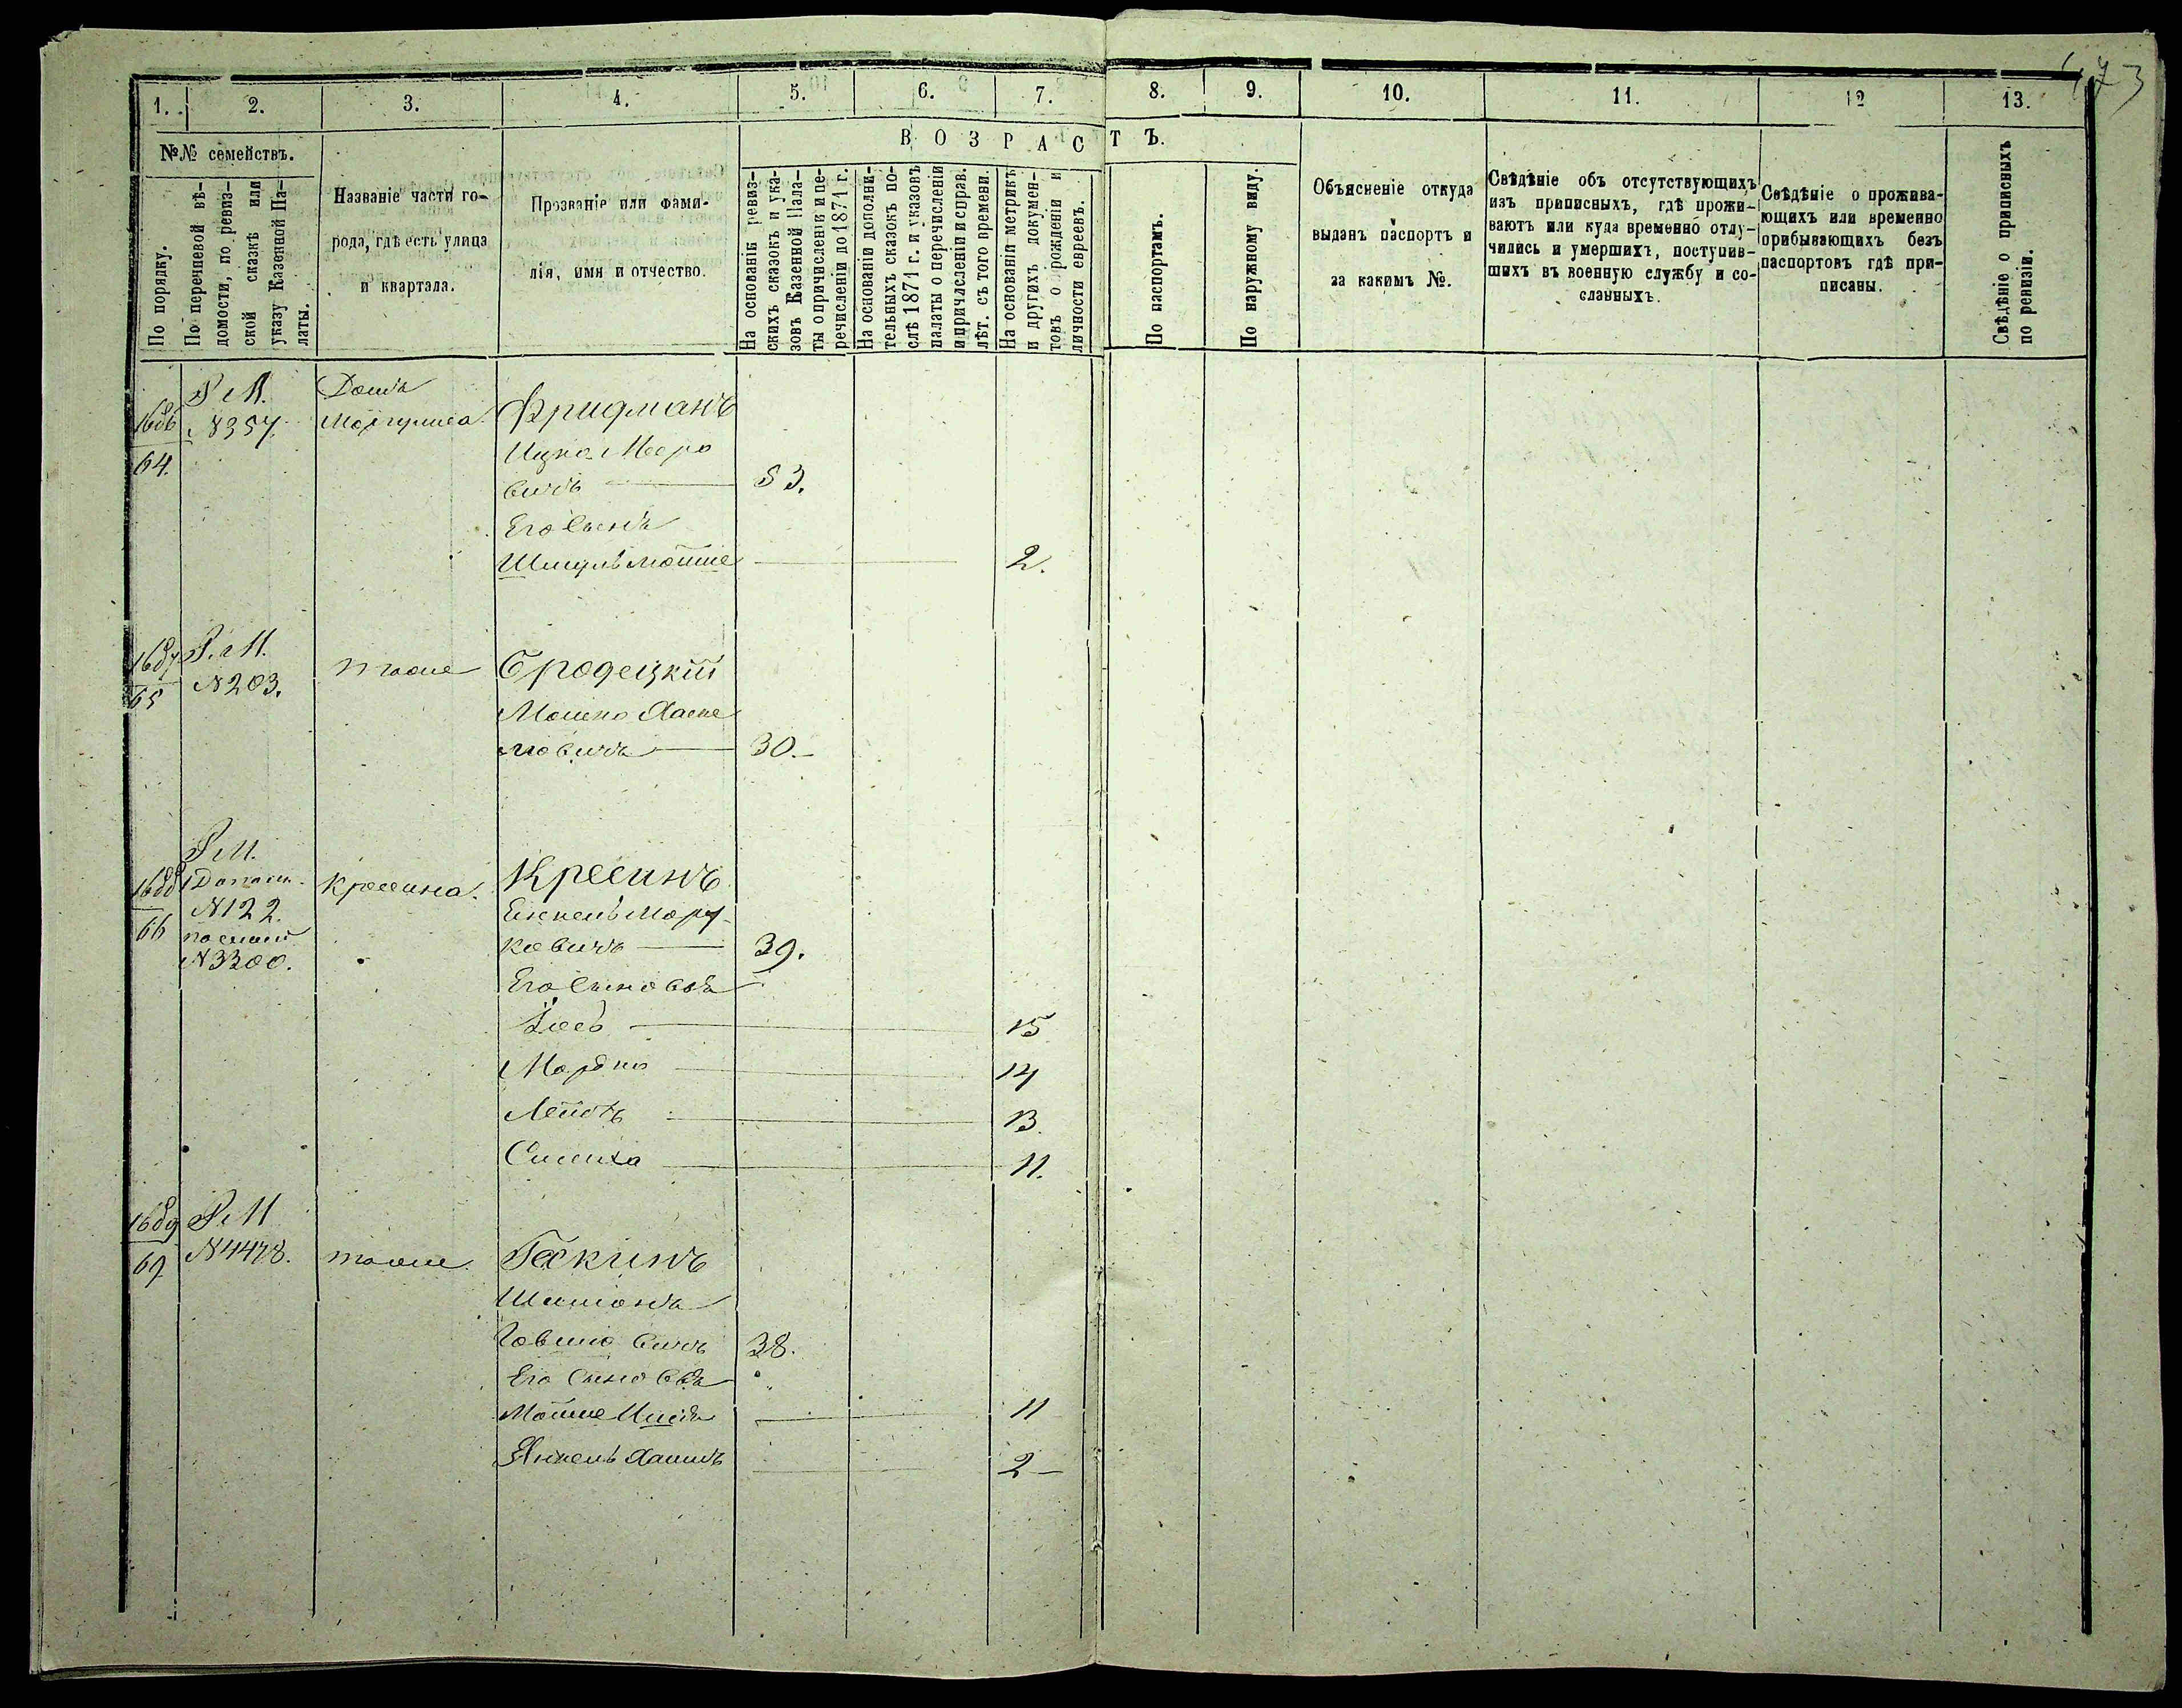 473
1. 2. 3. 4. 5. 6. 7. 8. 9. 10. 11. 12 13.
№№ семействъ.
По порядку.
По перечневой вѣ-
домости, по ревиз-
ской сказкѣ или
указу Казенной Па-
латы.
Названіе части го-
рода, гдѣ есть улица
и квартала.
Прозваніе или фами-
лія, имя и отчество.
ВОЗРАСТЪ.
На основаніи ревиз-
скихъ сказокъ и ука-
зовъ Казенной Пала-
ты о причисленіи и пе-
речисленіи до 1871 г.
На основаніи дополни-
тельныхъ сказокъ по-
слѣ 1871 г. и указовъ
палаты о перечисленіи
и причисленіи и справ.
лѣт. съ того времени.
На основаніи метрикъ
и другихъ докумен-
товъ о рожденіи и
личности евреевъ.
По паспортамъ.
По наружному виду.
Объясненіе откуда
выданъ паспортъ и
за какимъ №.
Свѣдѣніе объ отсутствующихъ
изъ приписныхъ, гдѣ прожи-
ваютъ или куда временно отлу-
чились и умершихъ, поступив-
шихъ въ военную службу и со-
сланныхъ.
Свѣдѣніе о прожива-
ющихъ или временно
прибывающихъ безъ
паспортовъ гдѣ при-
писаны.
Свѣдѣніе о приписныхъ
по ревизіи.
Домъ
1686 N357. Фридманъ
64. Ицко Меро
вичъ 53.
Его Сынъ
Шмуль Мойше 2.
1687
65 N203. тоже Бродецкій
Мошко Хаске
лювичъ 30.
1688 Кресина. Кресинъ
66 N122. Янкель Морд
N3300. ковичъ 39.
Его Сыновья
Зось 15
Мордко 14
Лейбъ 13.
Симха 11.
1689
67 N4478. тоже. Гескинъ
Шимонъ
Говшіовичъ 38.
Его Сыновья
Мойше 11
Янкель Хаимъ 2